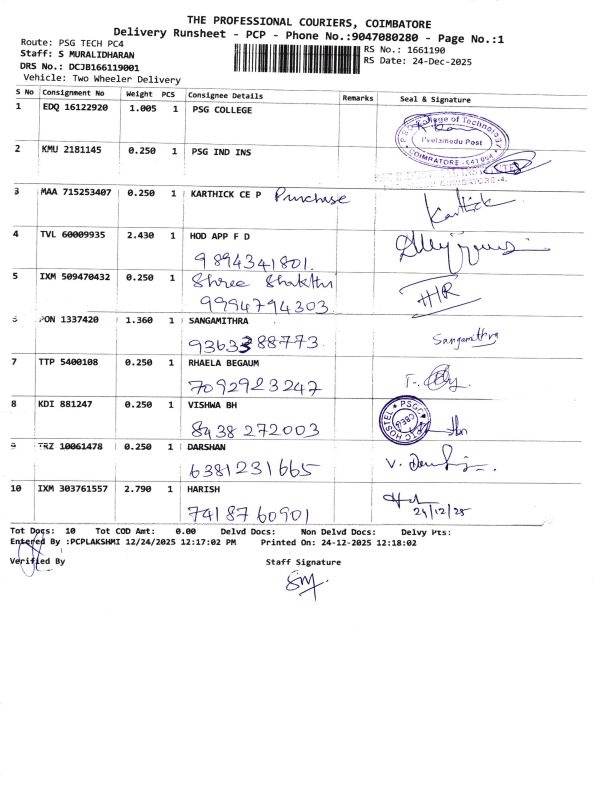 THE PROFESSIONAL COURIERS, COIMBATORE
Delivery Runsheet - PCP - Phone No.:9047080280 - Page No.:1
Route: PSG TECH PC4
Staff: S MURALIDHARAN
DRS No.: DCJB166119001
Vehicle: Two Wheeler Delivery
RS No.: 1661190
RS Date: 24-Dec-2025
S No Consignment No Weight PCS Consignee Details Remarks Seal & Signature
1 EDQ 16122920 1.005 1 PSG COLLEGE
PSG College of Technology
Peelamedu Post
COIMBATORE - 641 004
2 KMU 2181145 0.250 1 PSG IND INS
3 MAA 715253407 0.250 1 KARTHICK CE P Purchase Karthick
4 TVL 60009935 2.430 1 HOD APP F D
9894341801.
5 IXM 509470432 0.250 1 Shree Shakthi
9994794303
6 PON 1337420 1.360 1 SANGAMITHRA
9363388773. Sangamithra
7 TTP 5400108 0.250 1 RHAELA BEGAUM
7092923247
8 KDI 881247 0.250 1 VISHWA BH
8438 272003
HOSTEL
9 TRZ 10061478 0.250 1 DARSHAN
6381231665
10 IXM 303761557 2.790 1 HARISH
7418760901 24/12/25
Tot Docs: 10 Tot COD Amt: 0.00 Delvd Docs: Non Delvd Docs: Delvy Pts:
Entered By :PCPLAKSHMI 12/24/2025 12:17:02 PM Printed On: 24-12-2025 12:18:02
Verified By Staff Signature